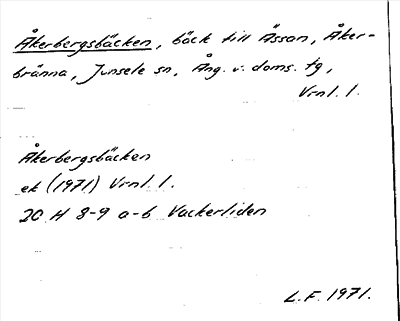 Åkerbergsbäcken, bäck till Åssan, Åker-
bränna, Junsele sn, Ång. v. doms. tg,
Vrnl. l.
Åkerbergsbäcken
ek (1971) Vrnl. l.
20 H 8-9 a-b Vackerliden
L.F. 1971.